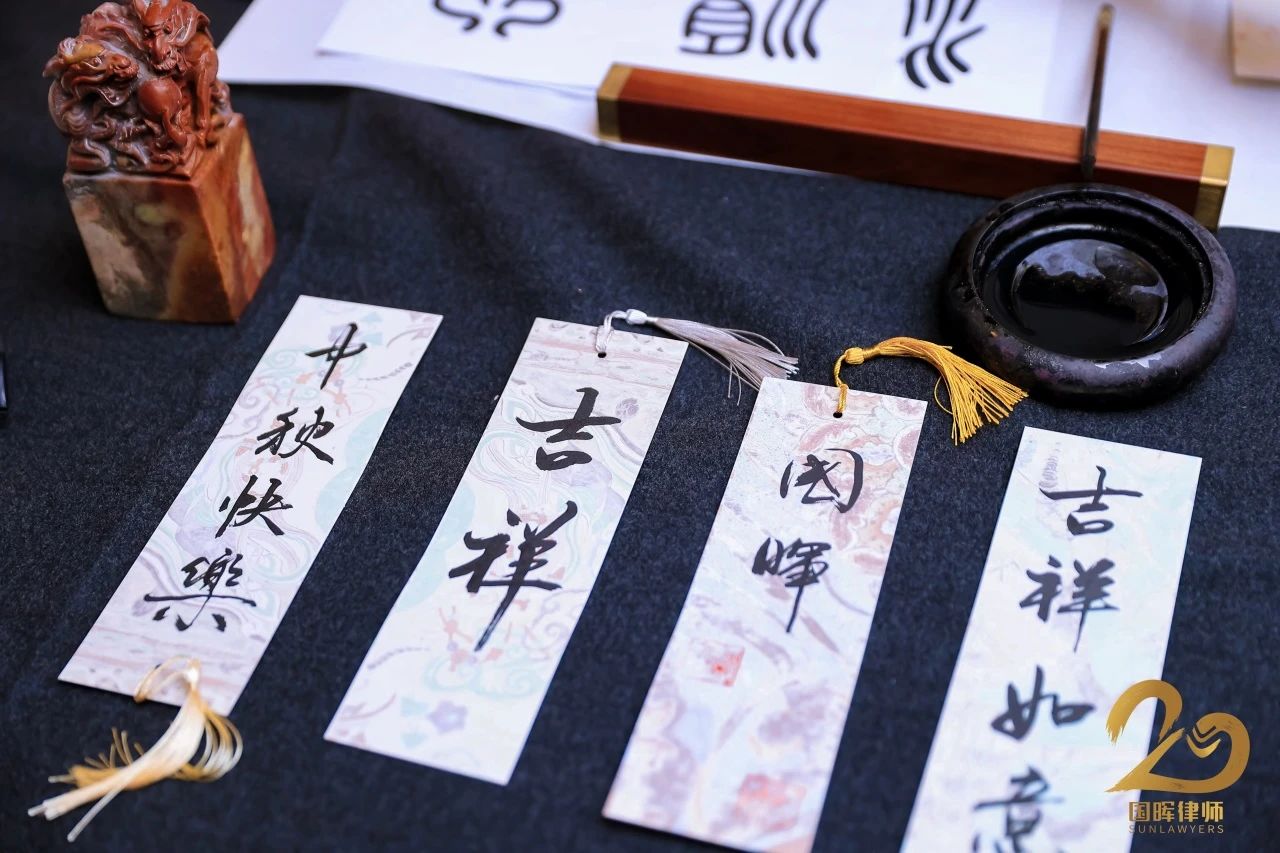 中秋快樂
吉祥
国暉
吉祥如意
国晖律师
SUNLAWYERS